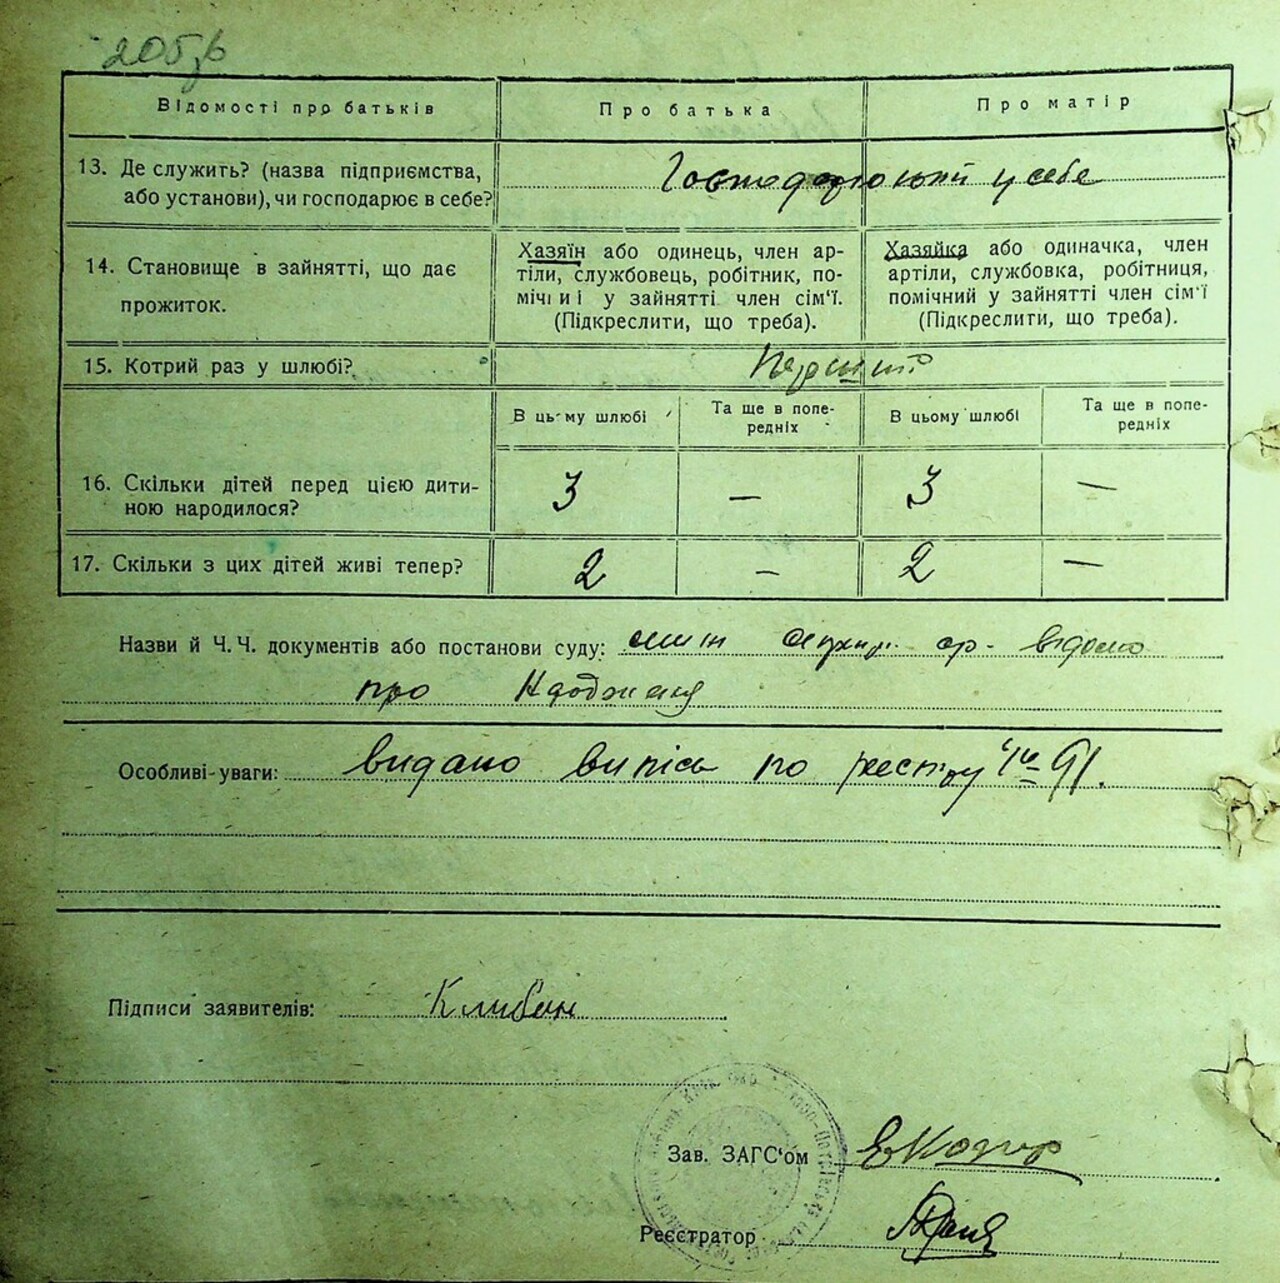 Відомості про батьків Про батька Про матір
13. Де служить? (назва підприємства,
або установи), чи господарює в себе?
у себе
14. Становище в зайнятті, що дає
прожиток.
Хазяїн або одинець, член ар-
тіли, службовець, робітник, по-
мічний у зайнятті член сім'ї.
(Підкреслити, що треба).
Хазяйка або одиначка, член
артіли, службовка, робітниця,
помічний у зайнятті член сім'ї
(Підкреслити, що треба).
15. Котрий раз у шлюбі?
Перший
В цьому шлюбі
Та ще в попе-
редніх
В цьому шлюбі
Та ще в попе-
редніх
16. Скільки дітей перед цією дити-
ною народилося?
3 — 3 —
17. Скільки з цих дітей живі тепер? 2 — 2 —
Назви й Ч. Ч. документів або постанови суду:
про
Особливі уваги: видано випись по реєстру № 91.
Підписи заявителів:
Зав. ЗАГС'ом
Реєстратор